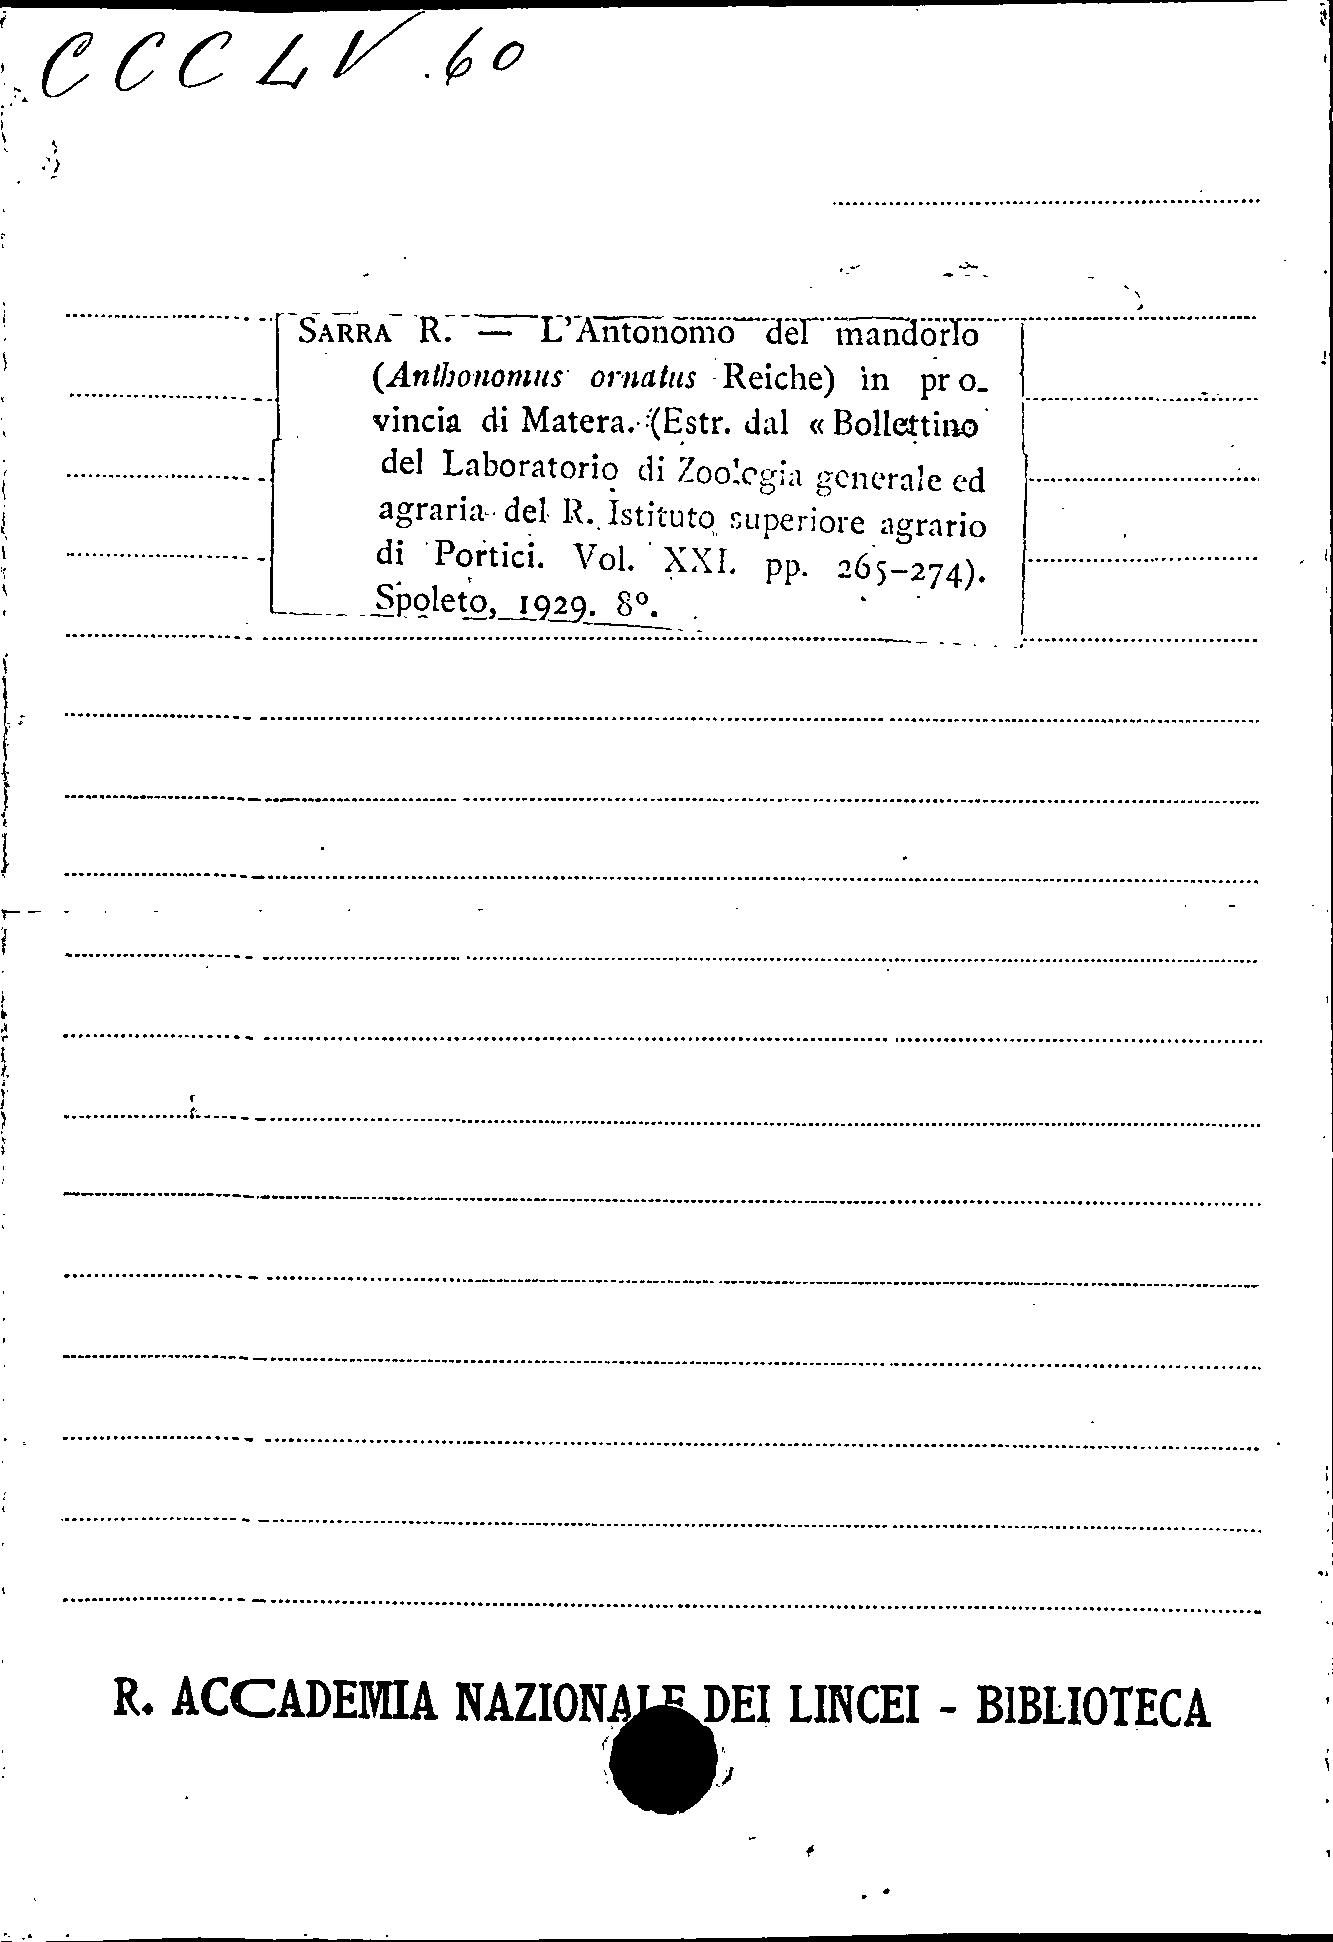 CCCLV.60
SARRA R. — L'Antonomo del mandorlo
(Anthonomus ornatus Reiche) in pro-
vincia di Matera. (Estr. dal « Bollettino
del Laboratorio di Zoologia generale ed
agraria del R. Istituto superiore agrario
di Portici. Vol. XXI. pp. 265-274).
Spoleto, 1929. 8º.
R. ACCADEMIA NAZIONALE DEI LINCEI - BIBLIOTECA